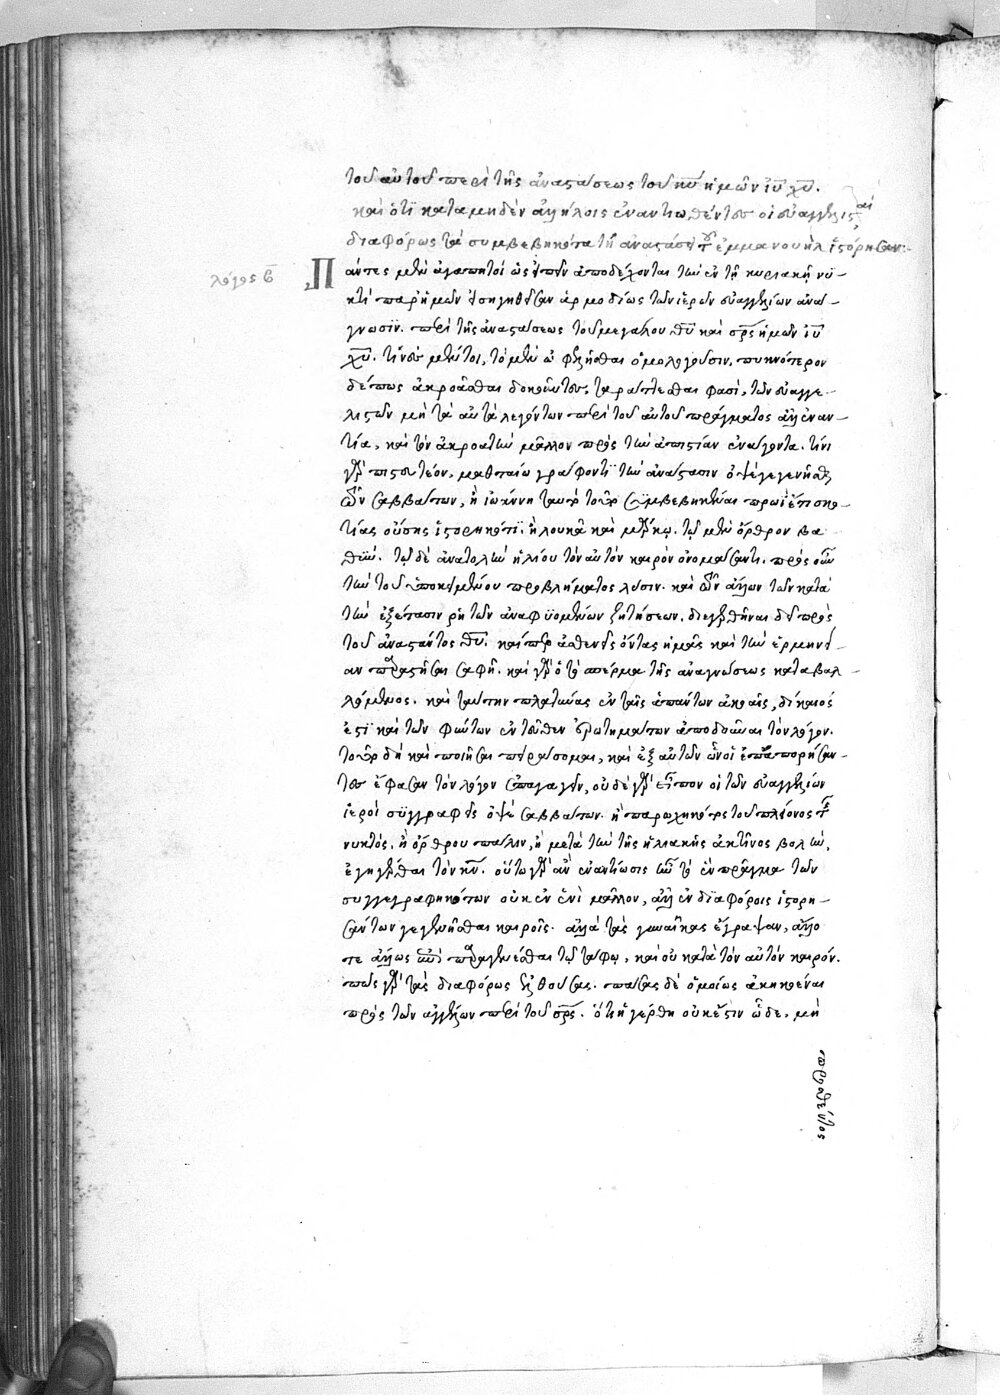 τοῦ αὐτοῦ περὶ τῆς ἀναστάσεως τοῦ κυ ἡμῶν ιυ χυ.
καὶ ὅτι κατὰ μηδὲν ἀλλήλοις ἐναντιωθέντες οἱ εὐαγγελισταὶ
διαφόρως τὰ συμβεβηκότα τῇ ἀναστάσει τοῦ ἐμμανουὴλ ἱστόρησαν:
λόγος β
Πάντες μὲν ἀγαπητοὶ ὡς ἀποδέχονται τὴν ἐν τῇ κυριακῇ νυ-
κτὶ παρ' ἡμῶν ἁρμοδίως τῶν ἱερῶν εὐαγγελίων ἀνά-
γνωσιν. περὶ τῆς ἀναστάσεως τοῦ μεγάλου θυ καὶ σρς ἡμῶν ιυ
χυ. τινὲς μέντοι, τὸ μὲν ὠφελῆσθαι ὁμολογοῦσιν. πυκνότερον
δέ πως ἀκροᾶσθαι δοκοῦντες, ταράττεσθαι φασὶ, τῶν εὐαγγε-
λιστῶν μὴ τὰ αὐτὰ λεγόντων περὶ τοῦ αὐτοῦ πράγματος ἀλλ' ἐναν-
τία, καὶ τὸν ἀκροατὴν μᾶλλον πρὸς τὴν ἀπιστίαν ἐνάγοντα. τίνι
γὰρ πιστευτέον, ματθαίῳ γράφοντι τὴν ἀνάστασιν ὀψὲ γεγενῆσθαι
τῶν σαββάτων, ἢ ἰωάννῃ ταύτην συμβεβηκέναι πρωῒ ἔτι σκο-
τίας οὔσης ἱστορηκότι. ἢ λουκᾷ καὶ μάρκῳ. τῷ μὲν ὄρθρον βα-
θὺν. τῷ δὲ ἀνατολὴν ἡλίου τὸν αὐτὸν καιρὸν ὀνομάσαντι. πρὸς οὖν
τὴν τοῦ ὑποκειμένου προβλήματος λύσιν. καὶ τῶν ἄλλων τῶν κατὰ
τὴν ἐξέτασιν ῥητῶν ἀναφυομένων ζητήσεων. διεγερθῆναι δεῖ πρὸς
τοῦ ἀναστάντος θυ. καίπερ ἀσθενεῖς ὄντας ἡμᾶς καὶ τὴν ἑρμηνεί-
αν παραστῆσαι σαφῆ. καὶ γὰρ ὁ τὸ σπέρμα τῆς ἀναγνώσεως καταβαλ-
λόμενος. καὶ ταύτην πλατύνας ἐν ταῖς ἁπάντων ἀκοαῖς, δίκαιός
ἐστι καὶ τῶν φύντων ἐντεῦθεν ἐρωτημάτων ἀποδοῦναι τὸν λόγον.
τοῦτο δὴ καὶ ποιῆσαι πειράσομαι, καὶ ἐξ αὐτῶν ὧν οἱ ἐπαπορήσαν-
τες ἔφασαν τὸν λόγον ἐπαγαγεῖν, οὐδὲ γὰρ εἶπον οἱ τῶν εὐαγγελίων
ἱεροὶ συγγραφεῖς ὀψὲ σαββάτων. ἢ παρῳχηκότος τοῦ πλείονος τῆς
νυκτὸς, ἢ ὄρθρου πάλιν, ἢ μετὰ τὴν τῆς ἡλιακῆς ἀκτῖνος βολὴν,
ἐγηγέρθαι τὸν κν. οὕτω γὰρ ἂν ἐναντίωσις ἦν τὸ ἓν πρᾶγμα τῶν
συγγεγραφηκότων οὐκ ἐν ἑνὶ μᾶλλον, ἀλλ' ἐν διαφόροις ἱστορη-
σάντων γεγενῆσθαι καιροῖς. ἀλλὰ τὰς γυναῖκας ἔγραψαν, ἄλλο
τε ἄλλως παραγενέσθαι τῷ τάφῳ, καὶ οὐ κατὰ τὸν αὐτὸν καιρόν.
πως γὰρ τὰς διαφόρως ἐλθούσας. πάσας δὲ ὁμοίως ἀκηκοέναι
πρὸς τῶν ἀγγέλων περὶ τοῦ σρς. ὅτι ἠγέρθη οὐκ ἔστιν ὧδε. μὴ